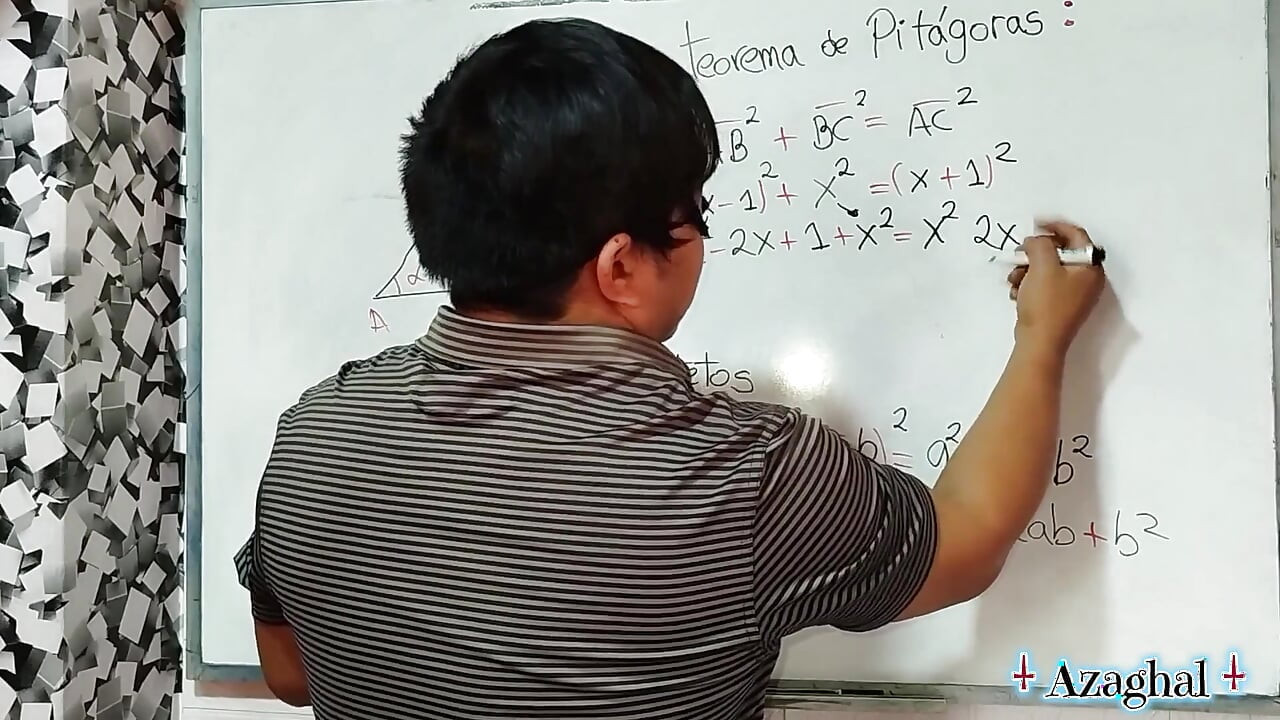 teorema de Pitágoras :
B² + BC² = AC²
x-1)² + x² =(x+1)²
-2x+1+x²= x² 2x
α
A
b)² = a² b²
ab+b²
Azaghal